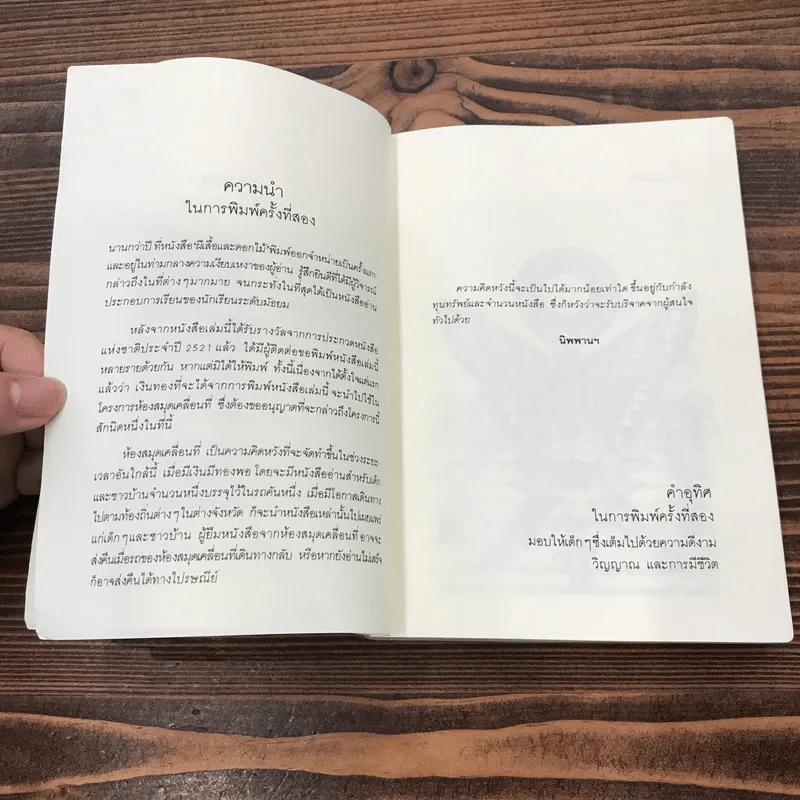 ความนำ
ในการพิมพ์ครั้งที่สอง
นานกว่าปี ที่หนังสือ"ผีเสื้อและดอกไม้"พิมพ์ออกจำหน่ายเป็นครั้งแรก
และอยู่ในท่ามกลางความเงียบเหงาของผู้อ่าน รู้สึกยินดีที่ได้มีผู้วิจารณ์
กล่าวถึงในที่ต่างๆมากมาย จนกระทั่งในที่สุดได้เป็นหนังสืออ่าน
ประกอบการเรียนของนักเรียนระดับมัธยม
หลังจากหนังสือเล่มนี้ได้รับรางวัลจากการประกวดหนังสือ
แห่งชาติประจำปี 2521 แล้ว ได้มีผู้ติดต่อขอพิมพ์หนังสือเล่มนี้
หลายรายด้วยกัน หากแต่มิได้ให้พิมพ์ ทั้งนี้เนื่องจากได้ตั้งใจแต่แรก
แล้วว่า เงินทองที่จะได้จากการพิมพ์หนังสือเล่มนี้ จะนำไปใช้ใน
โครงการห้องสมุดเคลื่อนที่ ซึ่งต้องขออนุญาตที่จะกล่าวถึงโครงการนี้
สักนิดหนึ่งในที่นี้
ห้องสมุดเคลื่อนที่ เป็นความคิดหวังที่จะจัดทำขึ้นในช่วงระยะ-
เวลาอันใกล้นี้ เมื่อมีเงินมีทองพอ โดยจะมีหนังสืออ่านสำหรับเด็ก
และชาวบ้านจำนวนหนึ่งบรรจุไว้ในรถคันหนึ่ง เมื่อมีโอกาสเดินทาง
ไปตามท้องถิ่นต่างๆในต่างจังหวัด ก็จะนำหนังสือเหล่านั้นไปเผยแพร่
แก่เด็กๆและชาวบ้าน ผู้ยืมหนังสือจากห้องสมุดเคลื่อนที่ อาจจะ
ส่งคืนเมื่อรถของห้องสมุดเคลื่อนที่เดินทางกลับ หรือหากยังอ่านไม่เสร็จ
ก็อาจส่งคืนได้ทางไปรษณีย์
ความคิดหวังนี้จะเป็นไปได้มากน้อยเท่าใด ขึ้นอยู่กับกำลัง
ทุนทรัพย์และจำนวนหนังสือ ซึ่งก็หวังว่าจะรับบริจาคจากผู้สนใจ
ทั่วไปด้วย
นิพพานฯ
คำอุทิศ
ในการพิมพ์ครั้งที่สอง
มอบให้เด็กๆซึ่งเต็มไปด้วยความดีงาม
วิญญาณ และการมีชีวิต